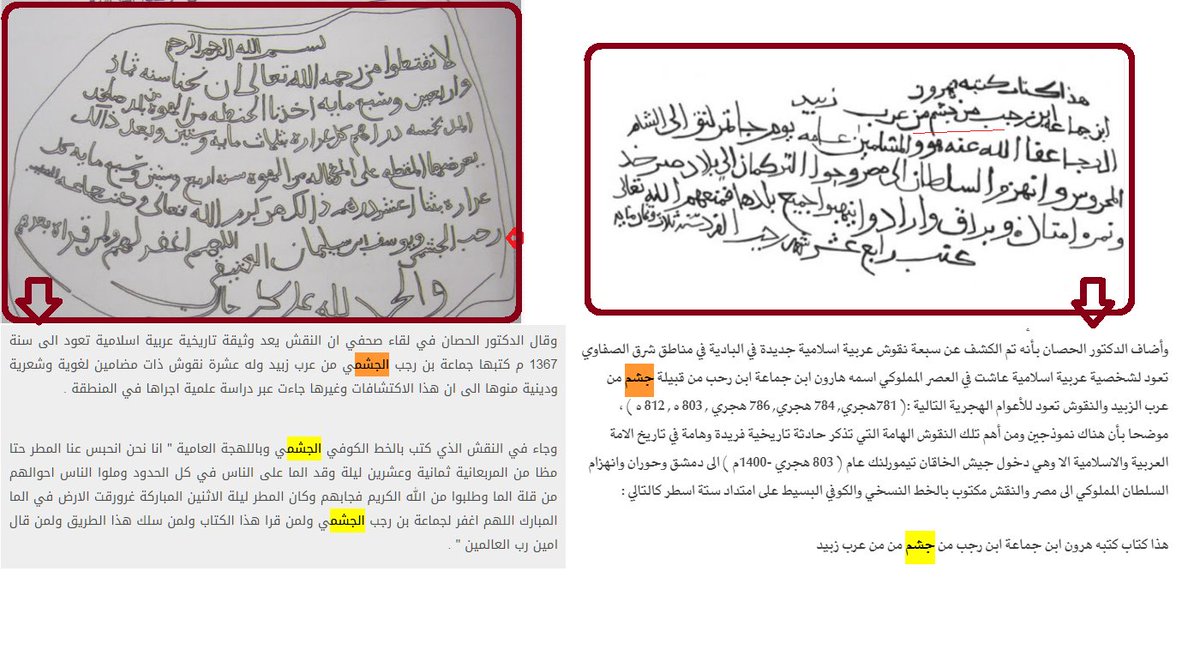 هذا كتاب كتبه هرون
ابن جماعة ابن رجب من جشم من عرب زبيد
عفا الله عنه هو والمسلمين عامه يوم جا تمرلنق الى الشام
المحروس وانهزم السلطان الى مصر وجوا التركمان الى بلاد صرخد
ونمره امتان وبراق وارادوا ينهبوا جميع بلادها فمنعهم الله تعالى
كتب رابع عشر شهر رجب الفرد سنة ثلاث وثمان مايه
وأضاف الدكتور الحصان بأنه تم الكشف عن سبعة نقوش عربية اسلامية جديدة في البادية في مناطق شرق الصفاوي
تعود لشخصية عربية اسلامية عاشت في العصر المملوكي اسمه هارون ابن جماعة ابن رحب من قبيلة جشم من
عرب الزبيد والنقوش تعود للأعوام الهجرية التالية :( 781هجري, 784 هجري, 786 هجري , 803 ه , 812 ه ) ،
موضحا بأن هناك نموذجين ومن أهم تلك النقوش الهامة التي تذكر حادثة تاريخية فريدة وهامة في تاريخ الامة
العربية والاسلامية الا وهي دخول جيش الخاقان تيمورلنك عام ( 803 هجري -1400م ) الى دمشق وحوران وانهزام
السلطان المملوكي الى مصر والنقش مكتوب بالخط النسخي والكوفي البسيط على امتداد ستة اسطر كالتالي :
هذا كتاب كتبه هرون ابن جماعة ابن رجب من جشم من من عرب زبيد
بسم الله الرحمن الرحيم
لا تقنطوا من رحمه الله تعالى ان نحنا سنه ثمان
واربعين وسبع مايه اخذنا الحنطه من
المد بخمسه دراهم كل غرارة بثلاث مايه وستين وبعد ذالك
على من سنه اربع وستين وسبع مايه كل
غرارة بثنا اعشر درهم ذالك من كرم الله تعالى وكتب جماعه
رجب الجشمي ويوسف ابن سليمان اللهم اغفر لهم ولمن قراه بعدهم
والحمد لله على كل حال
وقال الدكتور الحصان في لقاء صحفي ان النقش يعد وثيقة تاريخية عربية اسلامية تعود الى سنة
1367 م كتبها جماعة بن رجب الجشمي من عرب زبيد وله عشرة نقوش ذات مضامين لغوية وشعرية
ودينية منوها الى ان هذا الاكتشافات وغيرها جاءت عبر دراسة علمية اجراها في المنطقة .
وجاء في النقش الذي كتب بالخط الكوفي الجشمي وباللهجة العامية " انا نحن انحبس عنا المطر حتا
مظا من المربعانية ثمانية وعشرين ليلة وقد الما على الناس في كل الحدود وملوا الناس احوالهم
من قلة الما وطلبوا من الله الكريم فجابهم وكان المطر ليلة الاثنين المباركة غرورقت الارض في الما
المبارك اللهم اغفر لجماعة بن رجب الجشمي ولمن قرا هذا الكتاب ولمن سلك هذا الطريق ولمن قال
امين رب العالمين " .